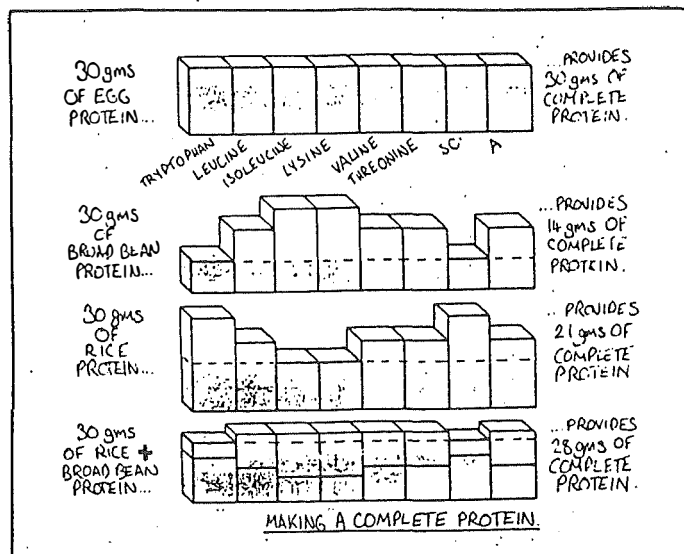 30 gms
OF EGG
PROTEIN...
...PROVIDES
30 gms OF
COMPLETE
PROTEIN.
TRYPTOPHAN
LEUCINE
ISOLEUCINE
LYSINE
VALINE
THREONINE
SC.
A
30 gms
OF
BROAD BEAN
PROTEIN...
...PROVIDES
14 gms OF
COMPLETE
PROTEIN.
30 gms
OF
RICE
PROTEIN...
...PROVIDES
21 gms OF
COMPLETE
PROTEIN
30 gms
OF RICE +
BROAD BEAN
PROTEIN...
...PROVIDES
28 gms OF
COMPLETE
PROTEIN.
MAKING A COMPLETE PROTEIN.